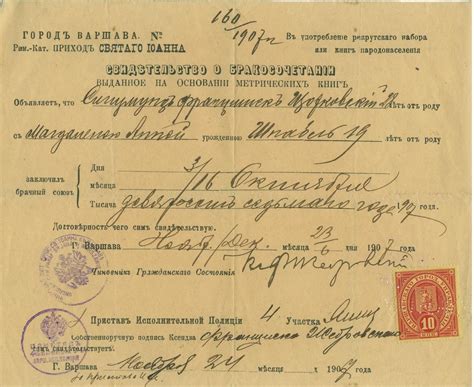 160
1907 г.
ГОРОДЪ ВАРШАВА. №
Рим.-Кат. ПРИХОДЪ СВЯТАГО ІОАННА
Въ употребленіе рекрутскаго набора
или книгъ народонаселенія
СВИДѢТЕЛЬСТВО О БРАКОСОЧЕТАНІИ
ВЫДАННОЕ НА ОСНОВАНІИ МЕТРИЧЕСКИХЪ КНИГЪ
Объявляетъ, что Сигизмундъ Францискъ 22 лѣтъ отъ роду
съ Магдаленою Анной урожденною Шнабель 19 лѣтъ отъ роду
заключилъ брачный союзъ
Дня 3/16
мѣсяца Октября
Тысяча девятьсотъ седьмаго года 907
Достовѣрность чего симъ свидѣтельствую.
Г. Варшава Нояб/Дек. мѣсяца 23/6 дня 1907 года
Чиновникъ Гражданскаго Состоянія
Приставъ Исполнительной Полиціи 4 Участка
Собственноручную подпись Ксендза Франциска
симъ свидѣтельствуетъ.
Г. Варшава Ноября 24 1907 года
10